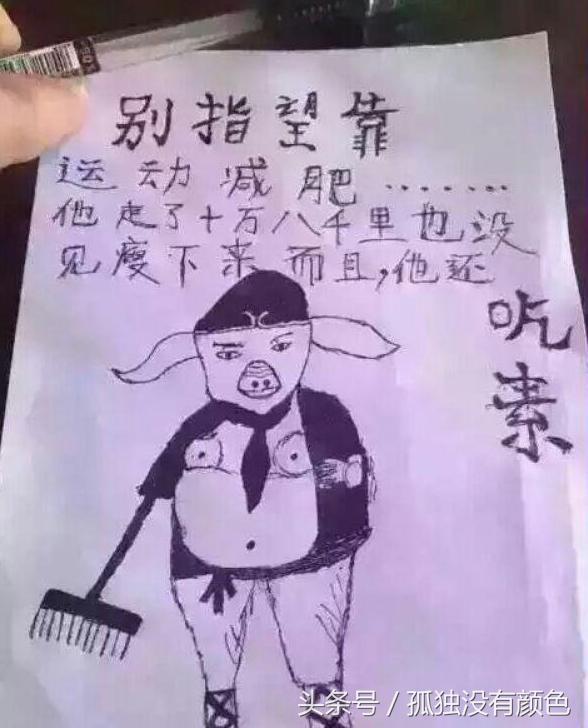 别指望靠
运动减肥.......
他走了十万八千里也没
见瘦下来而且,他还
吃素
头条号 / 孤独没有颜色